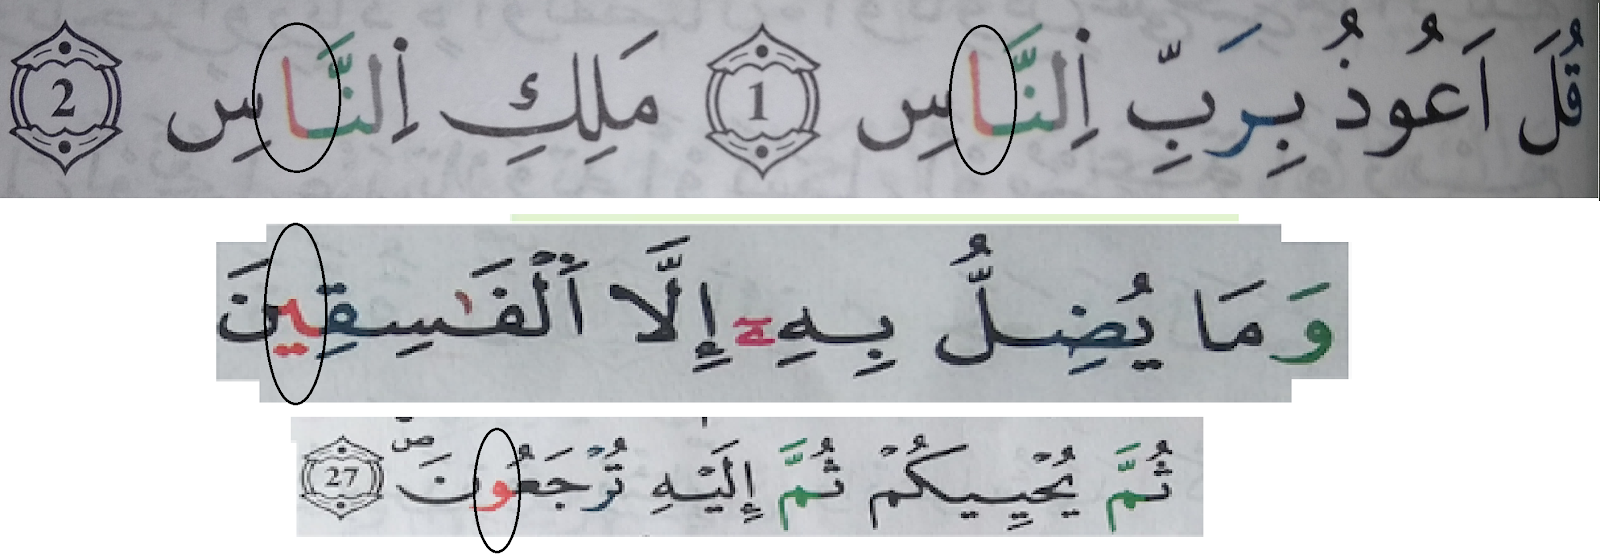 قُلَ اَعُوذُ بِرَبِّ اِ۬لنَّاسِ 1 مَلِكِ اِ۬لنَّاسِ 2
وَمَا يُضِلُّ بِهِۦٓ إِلَّا اَ۬لْفَٰسِقِينَ
ثُمَّ يُحْيِيكُمْ ثُمَّ إِلَيْهِ تُرْجَعُونَ ۖ 27